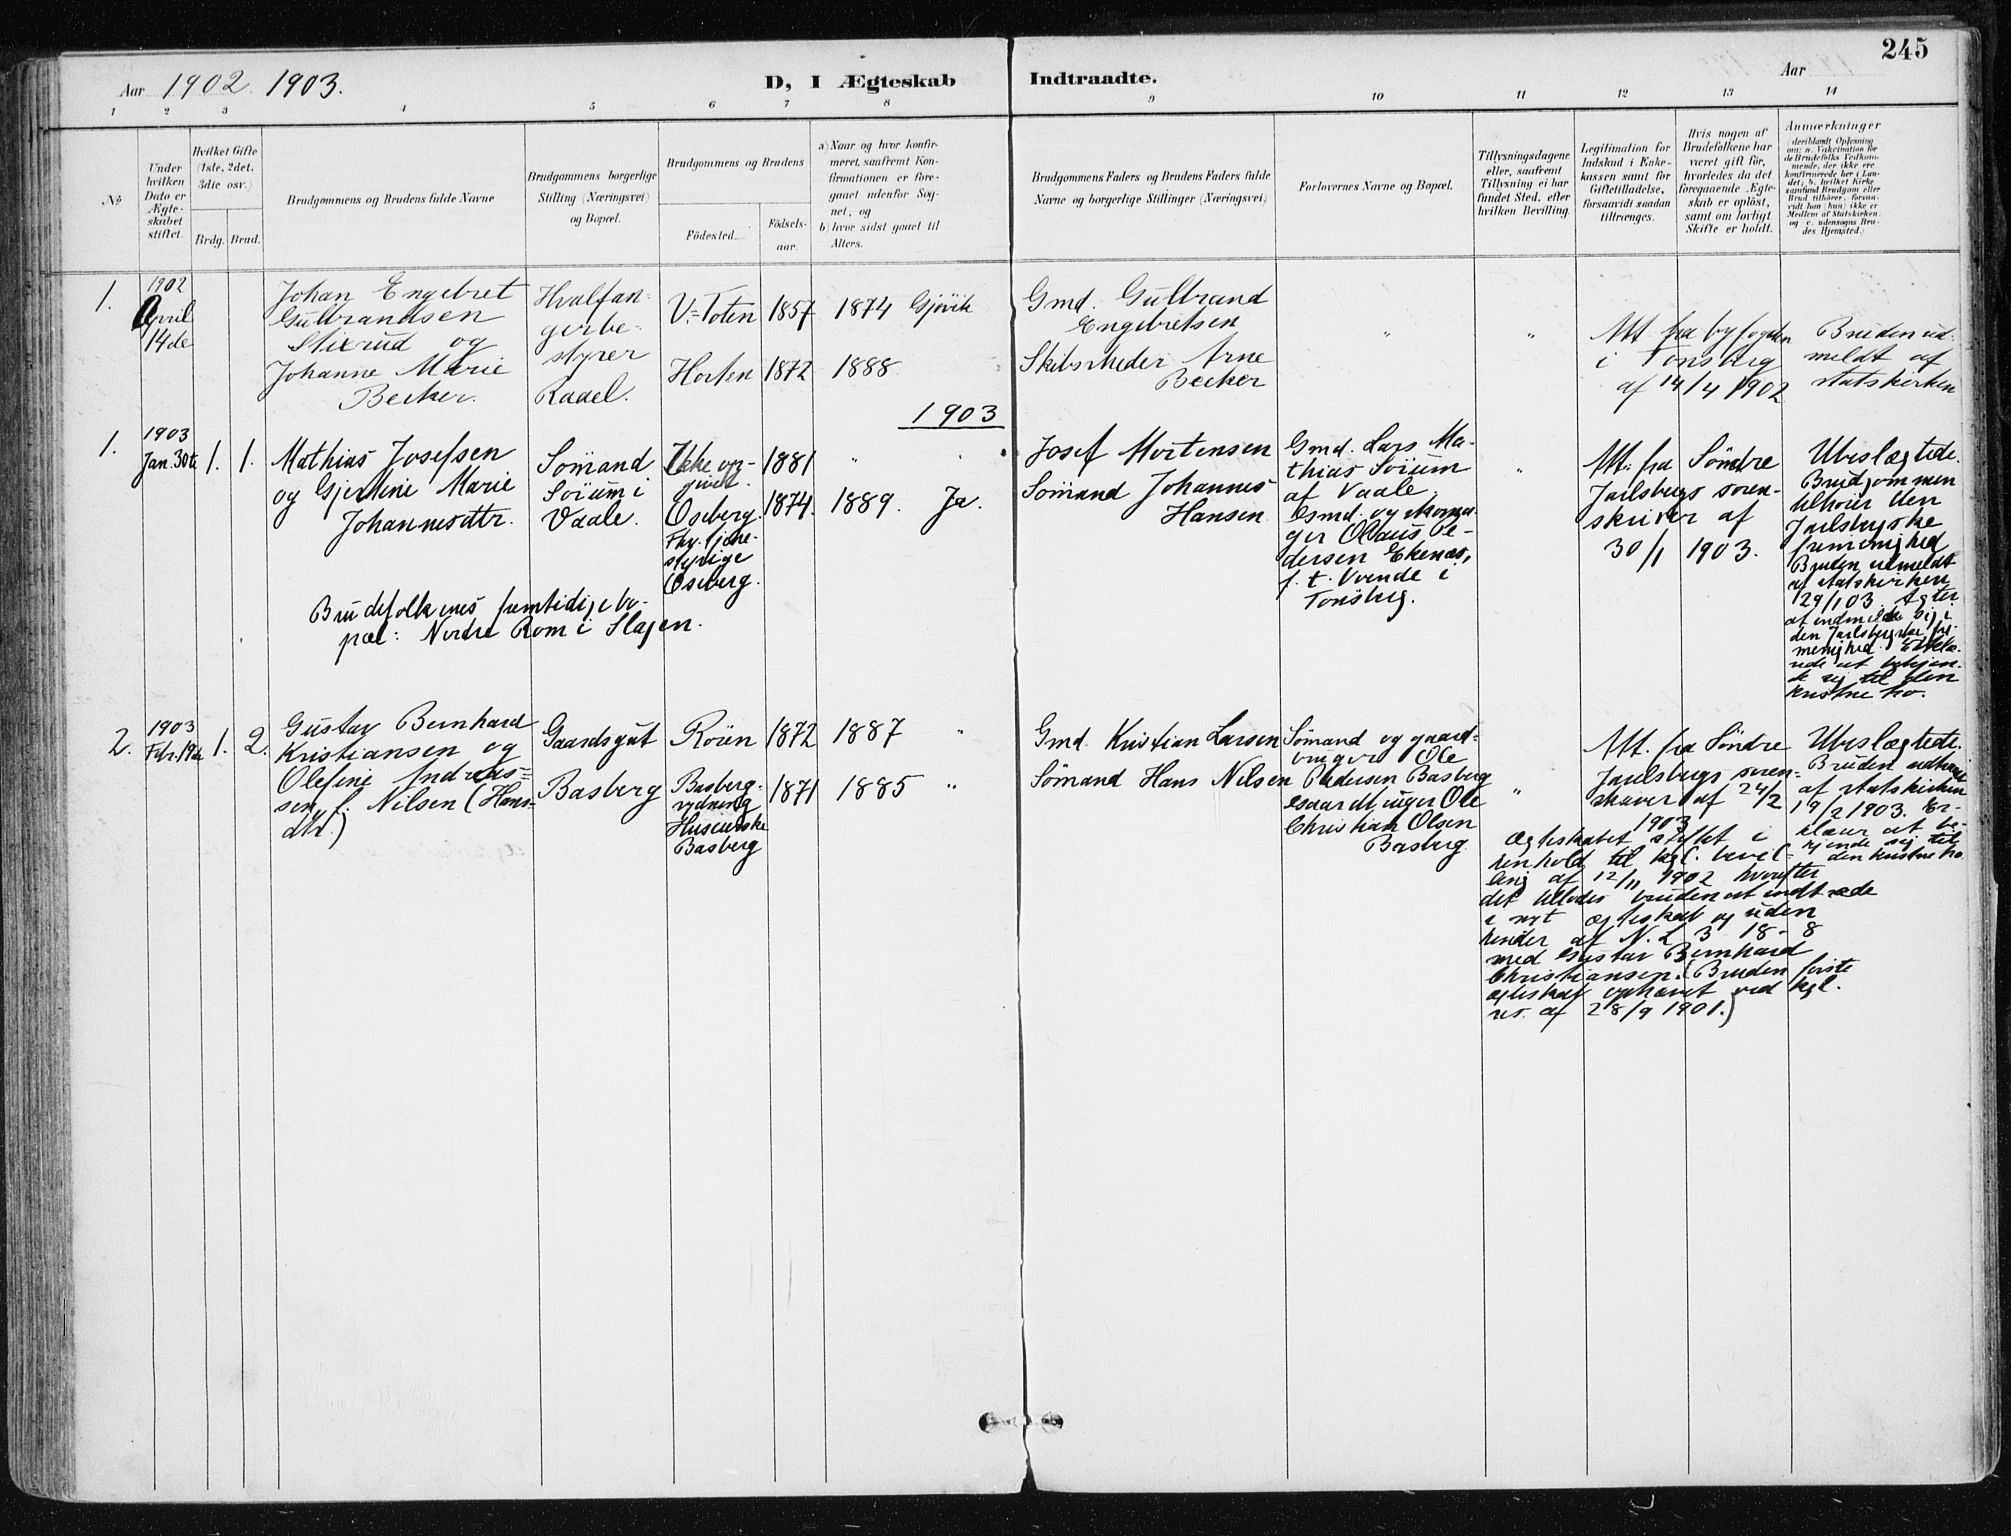 245
Aar 1902 1903.
D, I Ægteskab Indtraadte.
Aar
1 2 3 4 5 6 7 8 9 10 11 12 13 14
No
Under hvilken Dato er Ægteskabet stiftet.
Hvilket Gifte (1ste, 2det, 3die osv.)
Brdg. Brud.
Brudgommens og Brudens fulde Navne
Brudgommens borgerlige Stilling (Næringsvei) og Bopæl.
Brudgommens og Brudens
Fødested.
Fødselsaar.
a) Naar og hvor konfirmeret, saafremt Konfirmationen er foregaaet udenfor Sognet, og
b) hvor sidst gaaet til Alters.
Brudgommens Faders og Brudens Faders fulde Navne og borgerlige Stillinger (Næringsvei)
Forlovernes Navne og Bopæl.
Tillysningsdagene eller, saafremt Tillysning ei har fundet Sted, efter hvilken Bevilling.
Legitimation for Indskud i Enkekassen samt for Giftetilladelse, forsaavidt saadan tiltrænges.
Hvis nogen af Brudefolkene har været gift før, hvorledes da det foregaaende Ægteskab er opløst, samt om lovligt Skifte er holdt.
Anmærkninger
(deriblandt Oplysning om: a. Vaccination for de Brudefolks Vedkommende, der ikke ere konfirmerede her i Landet; b. hvilket Kirkesamfund Brudgom eller Brud tilhører, forsaavidt han (hun) ikke er Medlem af Statskirken, og c. udensogns Brudes Hjemsted.)
1.
1902
April
14de
Johan Engebret
Gulbrandsen
Stixrud og
Johanne Marie
Becker.
Hvalfan-
gerbe-
styrer
Raael.
V. Toten 1857 1874 Gjøvik
Horten 1872 1888
Gmd. Gulbrand
Engebretsen
Skibsrheder Arne
Becker
" "
Att. fra byfogden
i Tønsberg
af 14/4 1902
Bruden ud-
meldt af
statskirken
1903
1.
1903
Jan. 30te
1. 1.
Mathias Josefsen
og Gjertine Marie
Johannesdtr.
Sømand
Sørum i
Vaale.
Ikke op-
givet. 1881 "
Oseberg. 1874. 1889. Ja.
Oseberg.
Brudefolkenes fremtidige bo-
pæl: Nordre Rom i Slagen.
Josef Mortensen
Sømand Johannes
Hansen
Gmd. Lars Ma-
thias Sørum
af Vaale,
Gmd. og
Olaus Pe-
dersen Ekenæs,
f. t. i
Tønsberg.
"
Att. fra Søndre
Jarlsbergs soren-
skriver af
30/1 1903.
Ubeslægtede.
Brudgommen
tilhører den
Jarlsbergske
frimenighed
Bruden udmeldt
af statskirken
29/1 03. Agter
at indmelde sig i
den Jarlsbergske fri-
menighed. Erklæ-
rede at bekjen-
de sig til den
kristne tro.
2.
1903
Febr. 19de
1. 2.
Gustav Bernhard
Kristiansen og
Olefine Andreas-
sen f. Nilsen (Hans-
dtr.)
Gaardsgut
Basberg
Røren 1872 1887 "
Basberg- 1871 1885 "
Basberg
Gmd. Kristian Larsen
Sømand Hans Nilsen
Sømand og gaard-
bruger Ole
Pedersen Basberg
Gaardbruger Ole
Christian Olsen
Basberg
"
Att. fra Søndre
Jarlsbergs soren-
skriver af 24/2
1903
Ubeslægtede.
Bruden udtraadt
af statskirken
19/2 1903. Er-
klærer at be-
kjende sig til
den kristne tro
Ægteskabet stiftet i
henhold til kgl. bevil-
ling af 12/11 1902 hvorefter
det tillodes bruden at indtræde
i nyt ægteskab og uden
hinder af N. L 3-18-8
med Gustav Bernhard
Christiansen. (Bruden første
ægteskab ophævet ved kgl.
res. af 28/9 1901.)